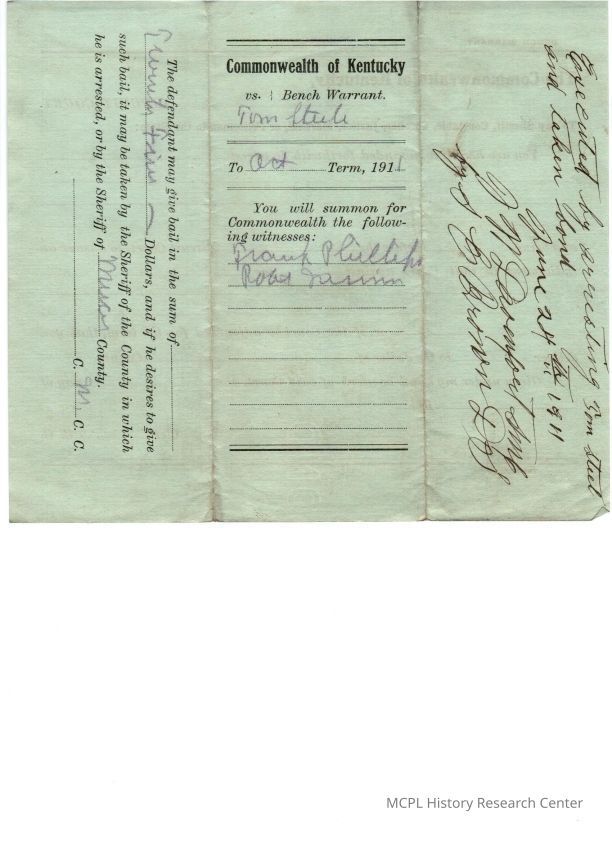 The defendant may give bail in the sum of
Twenty Five Dollars, and if he desires to give
such bail, it may be taken by the Sheriff of the County in which
he is arrested, or by the Sheriff of County.
C. M. C. C.
Commonwealth of Kentucky
vs. } Bench Warrant.
Tom Steele
To Oct Term, 1911
You will summon for
Commonwealth the follow-
ing witnesses:
Frank Phillips
Robt
Executed by arresting Tom Steel
and taken bond
June 24 th 1911
J W Davenport
by S C Brown D S
MCPL History Research Center